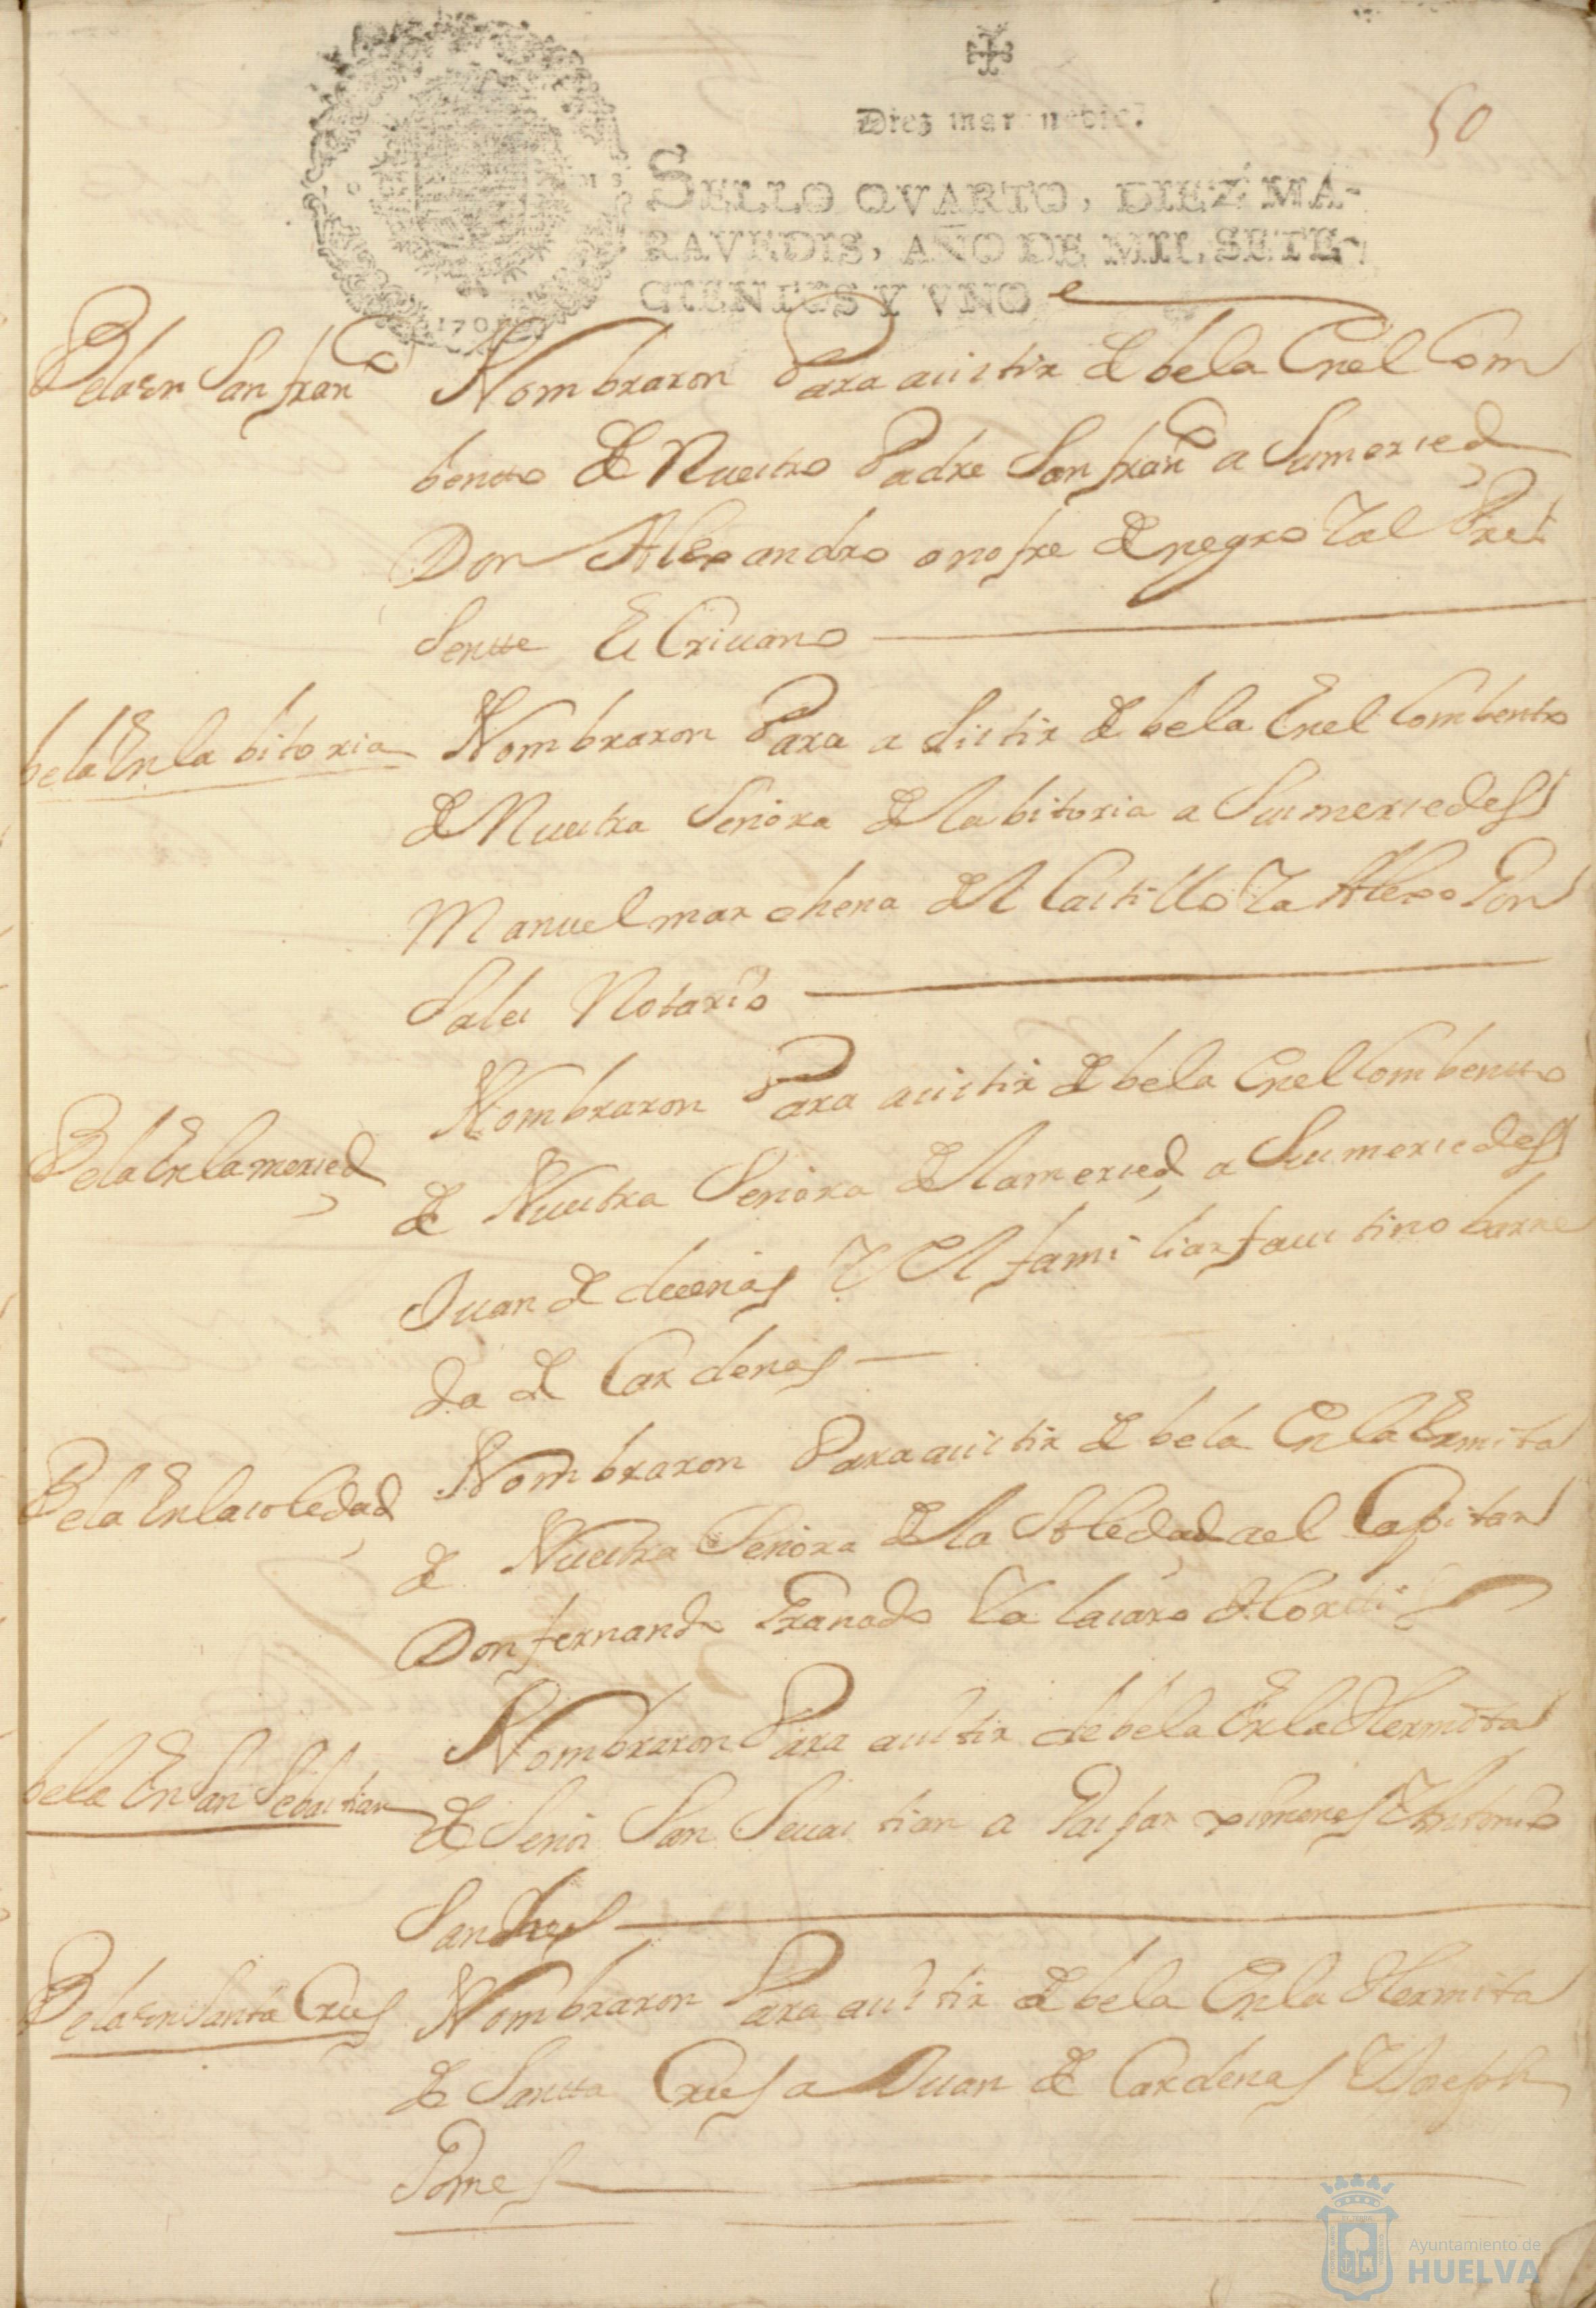 Diez maravedis.
50
SELLO QVARTO, DIEZ MA-
RAVEDIS, AÑO DE MIL SETE-
CIENTOS Y VNO
1701
Bela en San franco
Nombraron Para asistir de bela En el Com
bento de Nuestro Padre San franco a Su merced
Don Alexandro onofre de negro Y al Pre
Sente Escriuano
bela En la bitoria
Nombraron Para a Sistir de bela En el Combento
de Nuestra Señora de la bitoria a Sus mercedes
Manuel marchena del Castillo Y a Alexo Gon
Sales Notario
Bela En la merced
Nombraron Para asistir de bela En el Combento
de Nuestra Señora de la merced a Sus mercedes
Juan de dueñas Y El familiar faustino barre
da de Cardenas
Bela En la soledad
Nombraron Para asistir de bela En la Ermita
de Nuestra Señora de la Soledad a el Capitan
Don fernando Granado Y a Lasaro
bela En San Sebastian
Nombraron Para asistir de bela En la Hermita
de Señor San Seuastian a Gaspar ximenes Y Antonio
Sanches
Bela en Santa Crus
Nombraron Para asistir de bela En la Hermita
de Santta Crus a Juan de Cardenas Y Joseph
Gomes
Ayuntamiento de
HUELVA